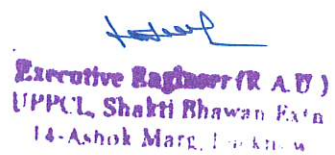 Executive Engineer (R A U)
UPPCL, Shakti Bhawan Extn
14-Ashok Marg, Lucknow